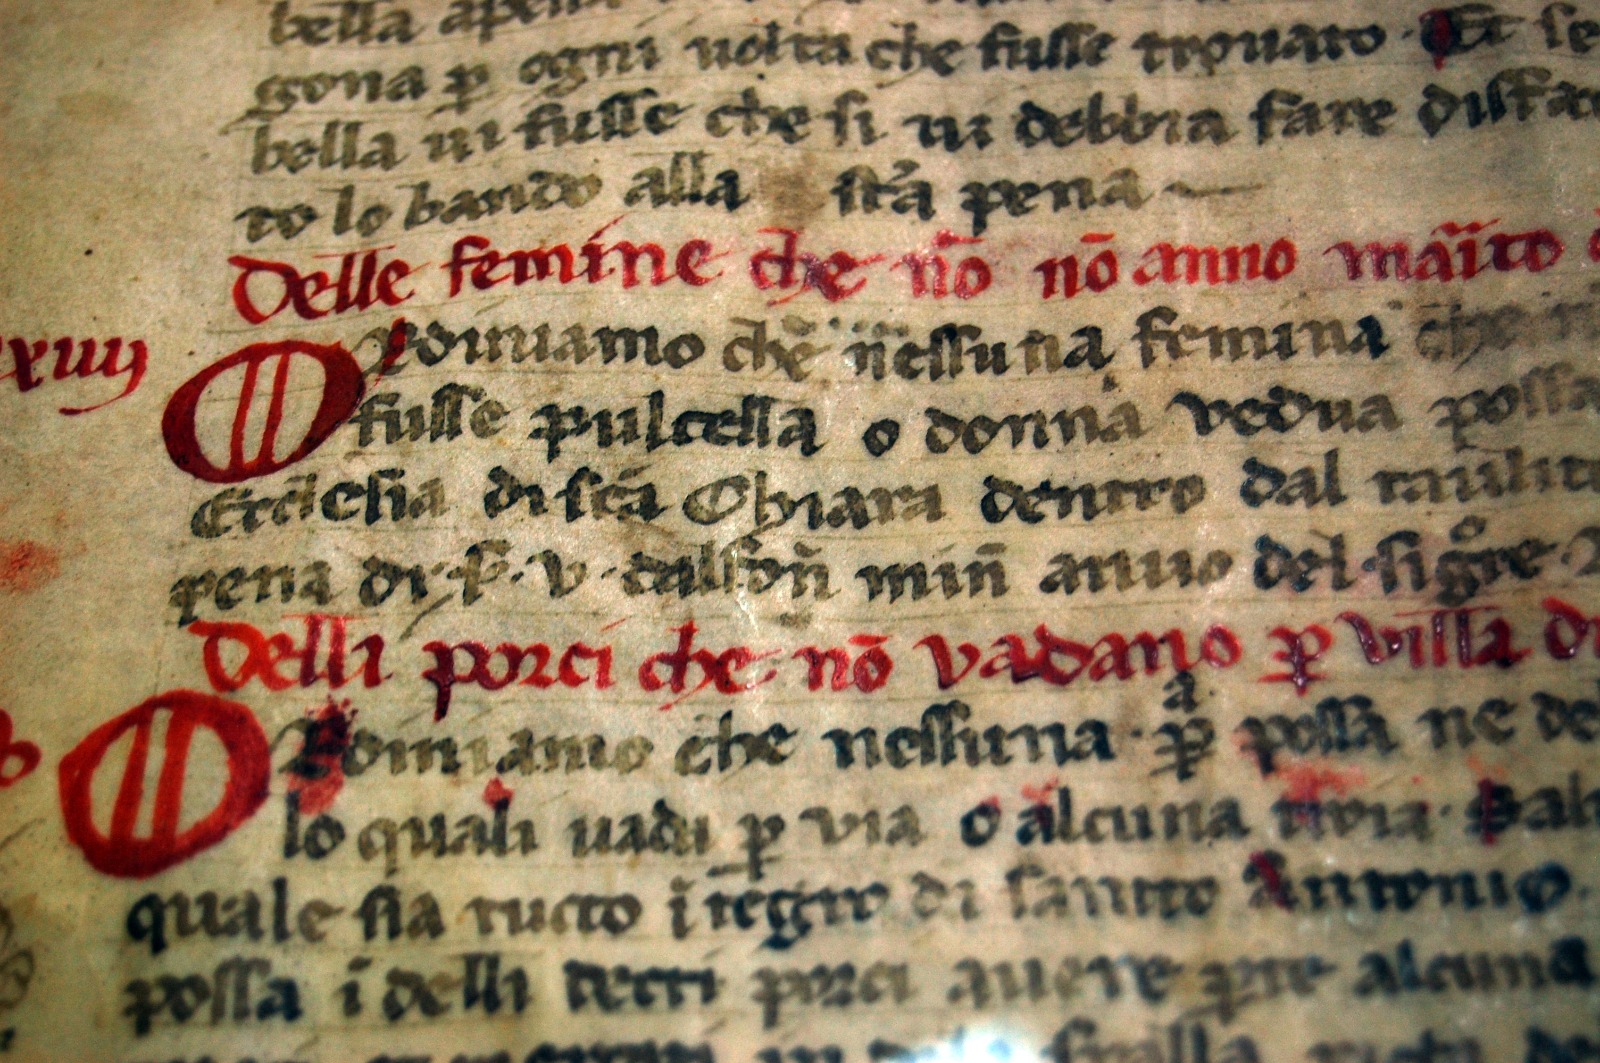 bella apena
gona p ogni uolta che fusse trouato · Et se
bella ui fusse che si ui debbia fare disfare
to lo bando alla scā pena
Delle femine che nō nō anno maīto
xiiij
Ordiniamo che nessuna femina che
fusse pulcella o donna vedua possa
Ecclesia di scā Chiara dentro dal
pena di · f · v · dal min anno del sigre
Delli porci che nō vadano p villa di
Ordiniamo che nessuna pa possa ne del
lo quali uadi p via o alcuna troia · Salu
quale sia tucto ītegro di santto Antonio
possa ī delli detti porci auere pte alcuna